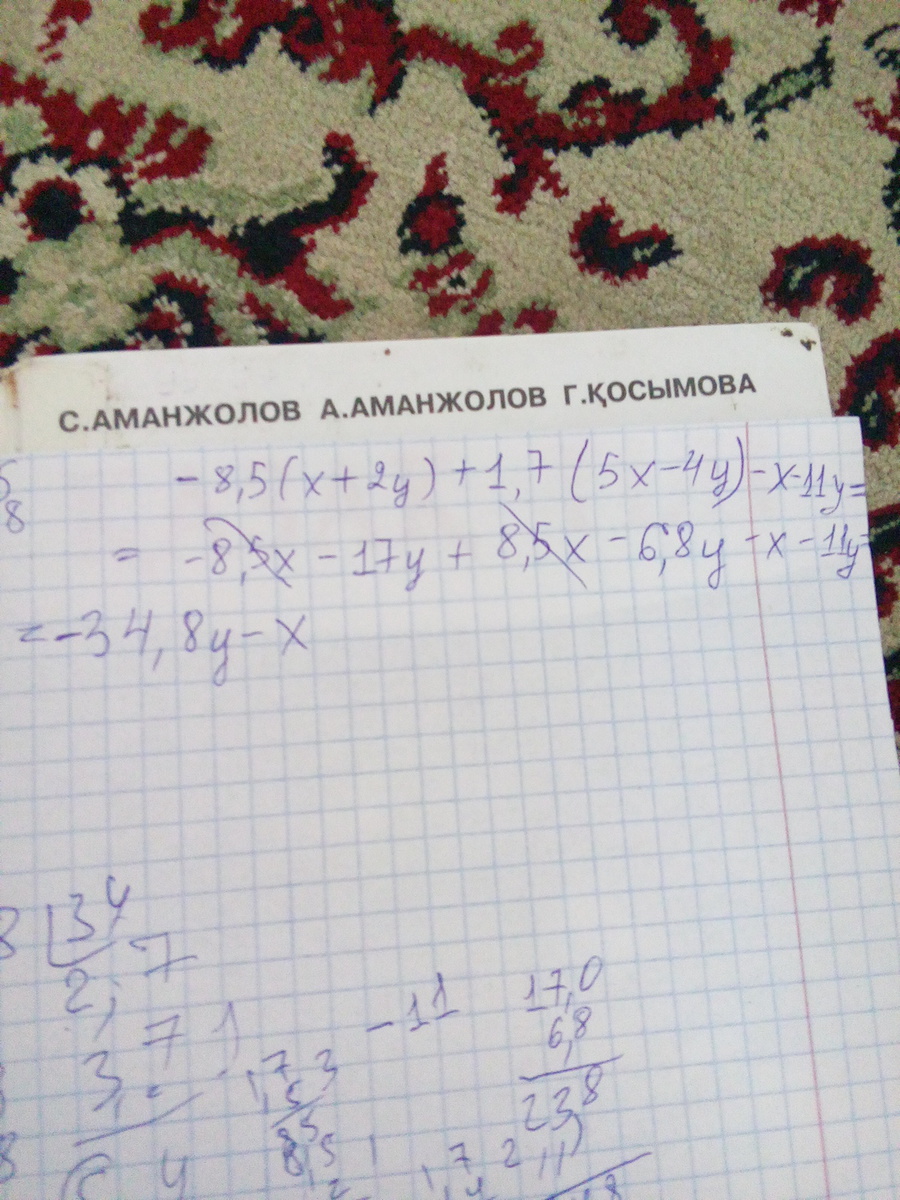 С.АМАНЖОЛОВ А.АМАНЖОЛОВ Г.ҚОСЫМОВА
5
8
-8,5(x+2y)+1,7(5x-4y)-x-11y=
= -8,5x-17y+8,5x-6,8y-x-11y=
=-34,8y-x
8 34
2,7
-11
17,0
6,8
23,8